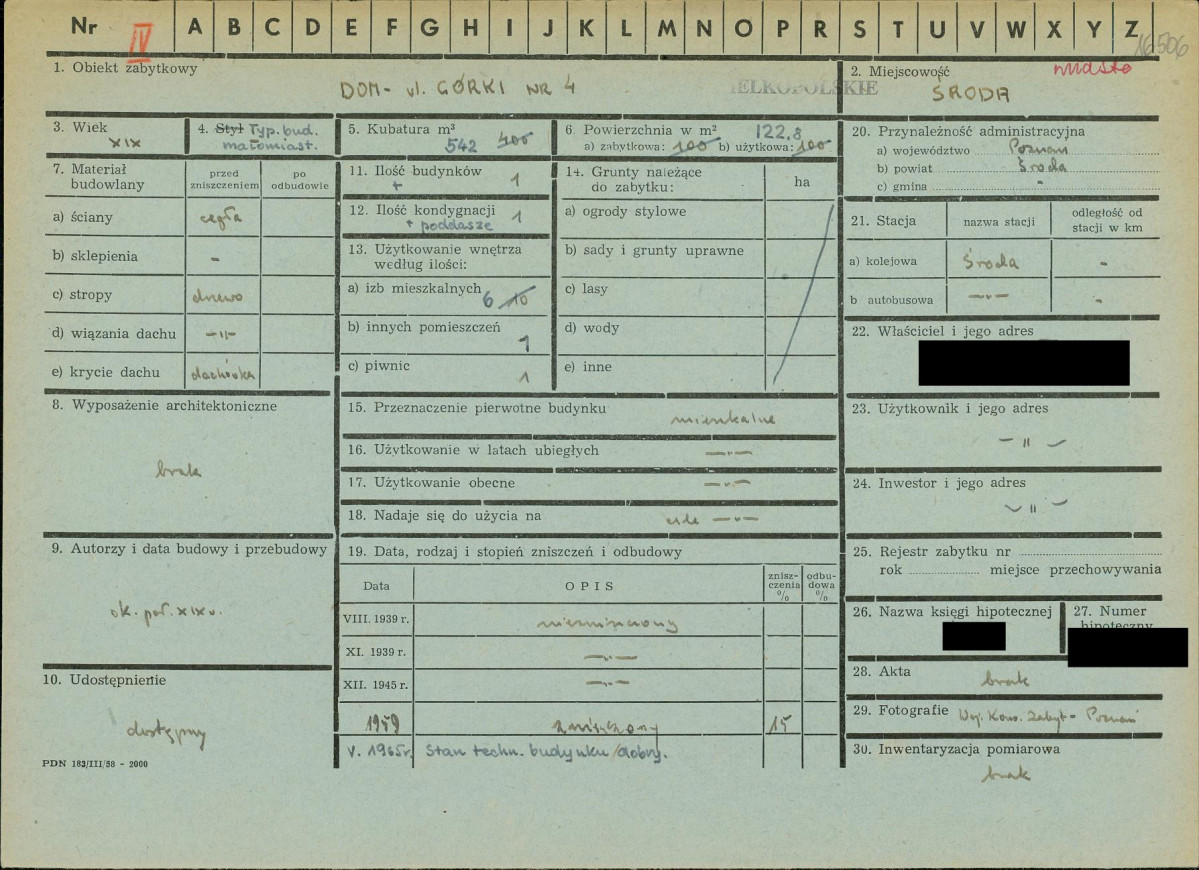 Nr IV A B C D E F G H I J K L M N O P R S T U V W X Y Z
16506
1. Obiekt zabytkowy
DOM - ul. GÓRKI NR 4
IELKOPOLSKIE
2. Miejscowość miasto
ŚRODA
3. Wiek
XIX
4. Styl Typ. bud.
małomiast.
5. Kubatura m³
542 400
6. Powierzchnia w m² 122,8
a) zabytkowa: 100 b) użytkowa: 100
7. Materiał budowlany
przed zniszczeniem
po odbudowie
a) ściany cegła
b) sklepienia -
c) stropy drewo
d) wiązania dachu -"-
e) krycie dachu dachówka
8. Wyposażenie architektoniczne
brak
9. Autorzy i data budowy i przebudowy
ok. poł. XIX w.
10. Udostępnienie
dostępny
PDN 183/III/58 - 2000
11. Ilość budynków 1
+
12. Ilość kondygnacji 1
+ poddasze
13. Użytkowanie wnętrza
według ilości:
a) izb mieszkalnych 6 10
b) innych pomieszczeń
1
c) piwnic
1
14. Grunty należące
do zabytku:
ha
a) ogrody stylowe
b) sady i grunty uprawne
c) lasy
d) wody
e) inne
15. Przeznaczenie pierwotne budynku
mieszkalne
16. Użytkowanie w latach ubiegłych -"-
17. Użytkowanie obecne -"-
18. Nadaje się do użycia na cele -"-
19. Data, rodzaj i stopień zniszczeń i odbudowy
Data
OPIS
znisz-
czenia
%
odbu-
dowa
%
VIII. 1939 r. niezniszczony
XI. 1939 r. -"-
XII. 1945 r. -"-
1959 zniszczony 15
V. 1965r. Stan techn. budynku dobry.
20. Przynależność administracyjna
a) województwo Poznań
b) powiat Środa
c) gmina "
21. Stacja
nazwa stacji
odległość od
stacji w km
a) kolejowa Środa -
b autobusowa -"- -
22. Właściciel i jego adres
23. Użytkownik i jego adres
-"-
24. Inwestor i jego adres
-"-
25. Rejestr zabytku nr
rok miejsce przechowywania
26. Nazwa księgi hipotecznej
27. Numer
hipoteczny
28. Akta
brak
29. Fotografie Woj. Kons. Zabyt - Poznań
30. Inwentaryzacja pomiarowa
brak